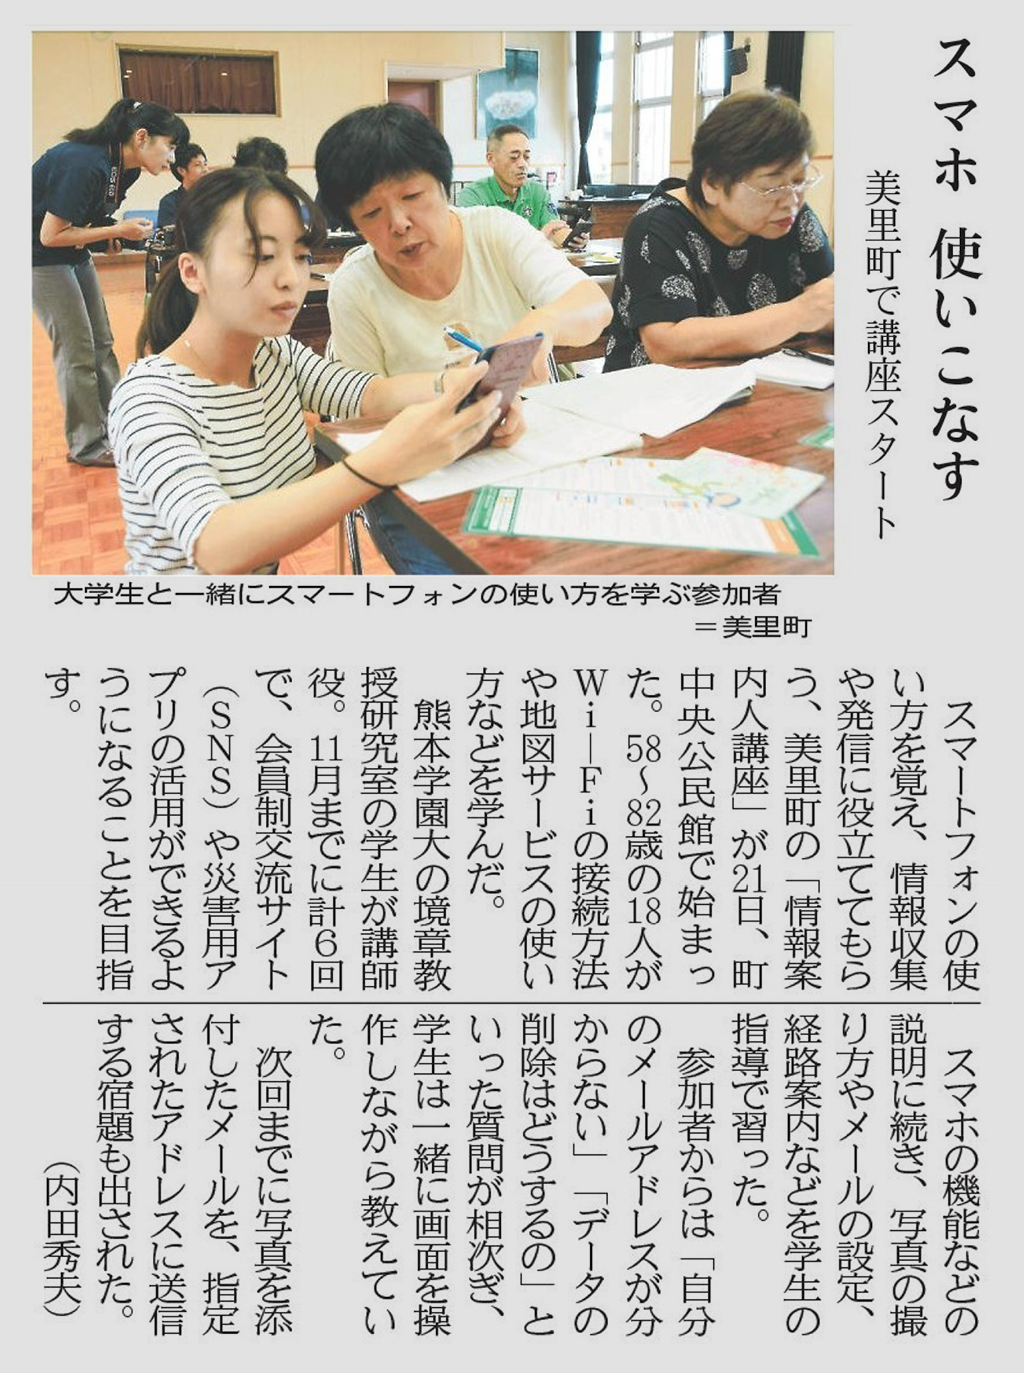 スマホ 使いこなす
美里町で講座スタート
大学生と一緒にスマートフォンの使い方を学ぶ参加者
＝美里町
スマートフォンの使
い方を覚え、情報収集
や発信に役立ててもら
う、美里町の「情報案
内人講座」が21日、町
中央公民館で始まっ
た。58～82歳の18人が
Wi―Fiの接続方法
や地図サービスの使い
方などを学んだ。
熊本学園大の境章教
授研究室の学生が講師
役。11月までに計6回
で、会員制交流サイト
（SNS）や災害用ア
プリの活用ができるよ
うになることを目指
す。
スマホの機能などの
説明に続き、写真の撮
り方やメールの設定、
経路案内などを学生の
指導で習った。
参加者からは「自分
のメールアドレスが分
からない」「データの
削除はどうするの」と
いった質問が相次ぎ、
学生は一緒に画面を操
作しながら教えてい
た。
次回までに写真を添
付したメールを、指定
されたアドレスに送信
する宿題も出された。
（内田秀夫）